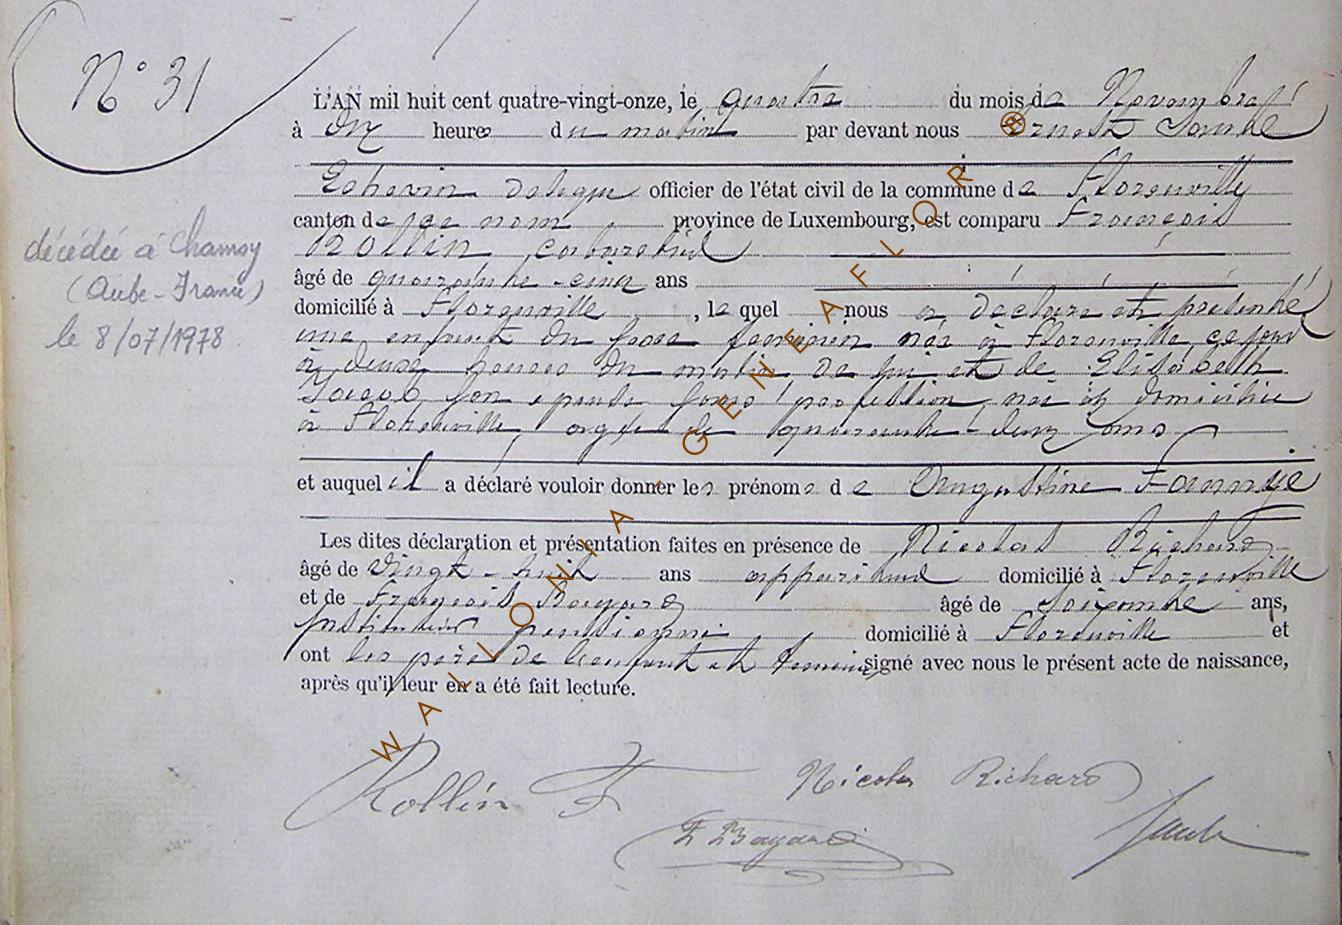 N° 31
L'AN mil huit cent quatre-vingt-onze, le quatre du mois de Novembre
à dix heures du matin par devant nous Ernest
Echevin délégué officier de l'état civil de la commune de Florenville
canton de ce nom province de Luxembourg, est comparu François
Rollin, cabaretier
âgé de quarante-cinq ans
domicilié à Florenville, le quel nous a déclaré et présenté
une enfant du sexe féminin née à Florenville, ce jour
à deux heures du matin de lui et de Elisabeth
son épouse sans profession, née et domiciliée
à Florenville, agée de quarante-deux ans
et auquel il a déclaré vouloir donner les prénoms de Augustine Fannye
Les dites déclaration et présentation faites en présence de Nicolas Richard
âgé de Vingt-huit ans appariteur domicilié à Florenville
et de François Bayard âgé de soixante ans,
Instituteur pensionné domicilié à Florenville et
ont les père de l'enfant et témoins signé avec nous le présent acte de naissance,
après qu'il leur en a été fait lecture.
décédée à Chamoy
(Aube-France)
le 8/07/1978
Rollin F
Nicolas Richard
F Bayard
WALLONIA - GENEAFLOR